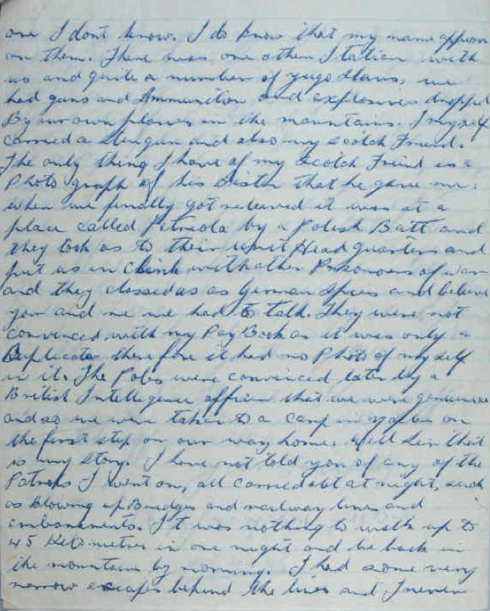 one I dont know. I do know that my name appears
on them. There was one other Italian with
us and quite a number of yugo slavs, we
had guns and Ammunition and explosives dropped
By our own planes in the mountains. I myself
carried a stengun and also my Scotch Friend.
The only thing I have of my Scotch Friend is a
Photo graph of his Sister that he gave me.
when we finally got relieved it was at a
place called Petriola by a Polish Batt and
they took us to their Unit Head Quarters and
put us in Clink with other Prisoners of war
and they classed us as German Spies and believe
you and me we had to talk. They were not
convinced with my Pay Book as it was only a
Duplicate therefore it had no Photo of my self
in it. The Poles were convinced later by a
British Intelligence officer that we were genuine
and so we were taken to a camp in on
the first step on our way home. Well Sir that
is my story. I have not told you of any of the
Patrols I went on, all carried out at night, such
as Blowing up Bridges and railway lines and
embankments. It was nothing to walk up to
45 Kelometres in one night and be back in
the mountains by morning. I had some very
narrow escapes behind the lines and I never